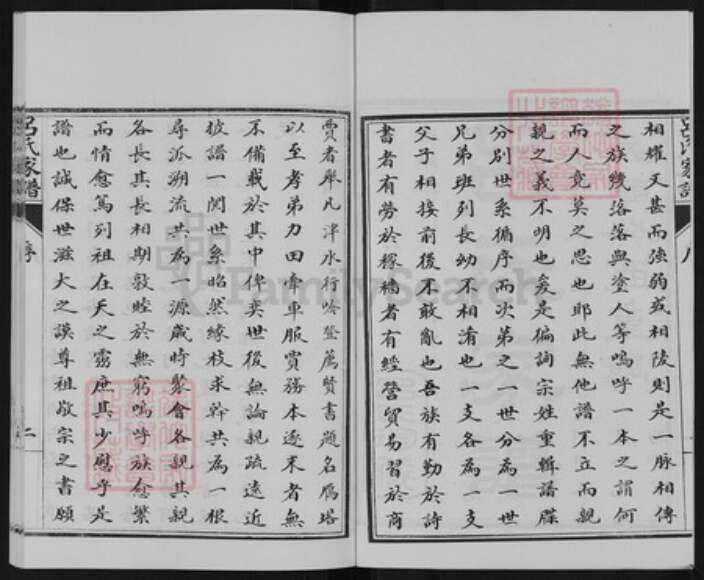 相耀又甚而強弱或相陵則是一脈相傳
之族幾落落與塗人等嗚呼一本之謂何
而人竟莫之思也耶此無他譜不立而親
親之義不明也爰是徧詢宗姓重輯譜牒
分別世系循序而次第之一世分為一世
兄弟班列長幼不相淆也一支各為一支
父子相接前後不敢亂也吾族有勤於詩
書者有勞於稼穡者有經營貿易習於商
賈者舉凡泮水行吟登薦賢書題名雁塔
以至孝弟力田牽車服賈務本逐末者無
不備載於其中俾奕世後無論親疏遠近
披譜一閱世系昭然緣枝求幹共為一根
尋派溯流共為一源歲時聚會各親其親
各長其長相期敦睦於無窮嗚呼族愈繁
而情愈篤列祖在天之靈庶其少慰乎是
譜也誠保世滋大之謨尊祖敬宗之書願
呂氏家譜
序
二
FamilySearch